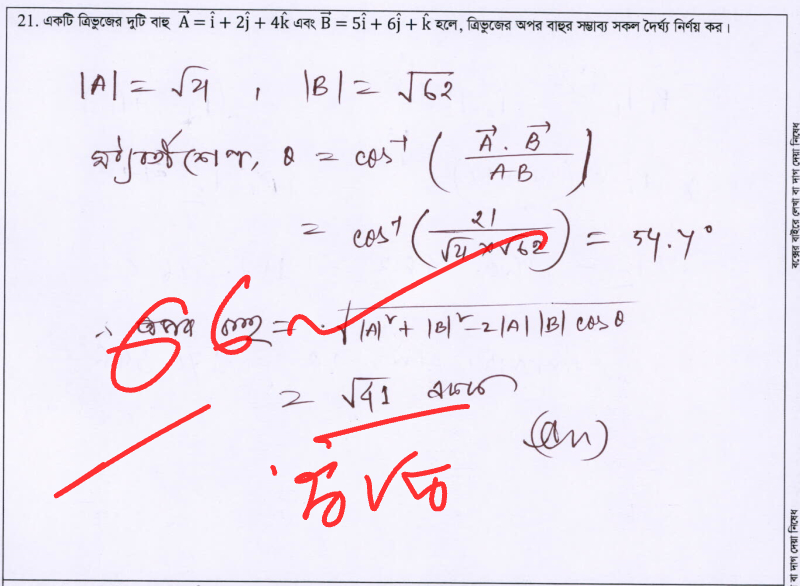 21. একটি ত্রিভুজের দুটি বাহু A⃗ = î + 2ĵ + 4k̂ এবং B⃗ = 5î + 6ĵ + k̂ হলে, ত্রিভুজের অপর বাহুর সম্ভাব্য সকল দৈর্ঘ্য নির্ণয় কর।
|A| = √21 , |B| = √62
θ = cos⁻¹ (A⃗ . B⃗ / AB)
= cos⁻¹ (21 / √21 × √62) = 54.4°
∴ অপর বাহু = √|A|² + |B|² - 2|A||B| cosθ
= √41 একক
(Ans)
বক্সের বাইরে লেখা বা দাগ দেয়া নিষেধ
বা দাগ দেয়া নিষেধ